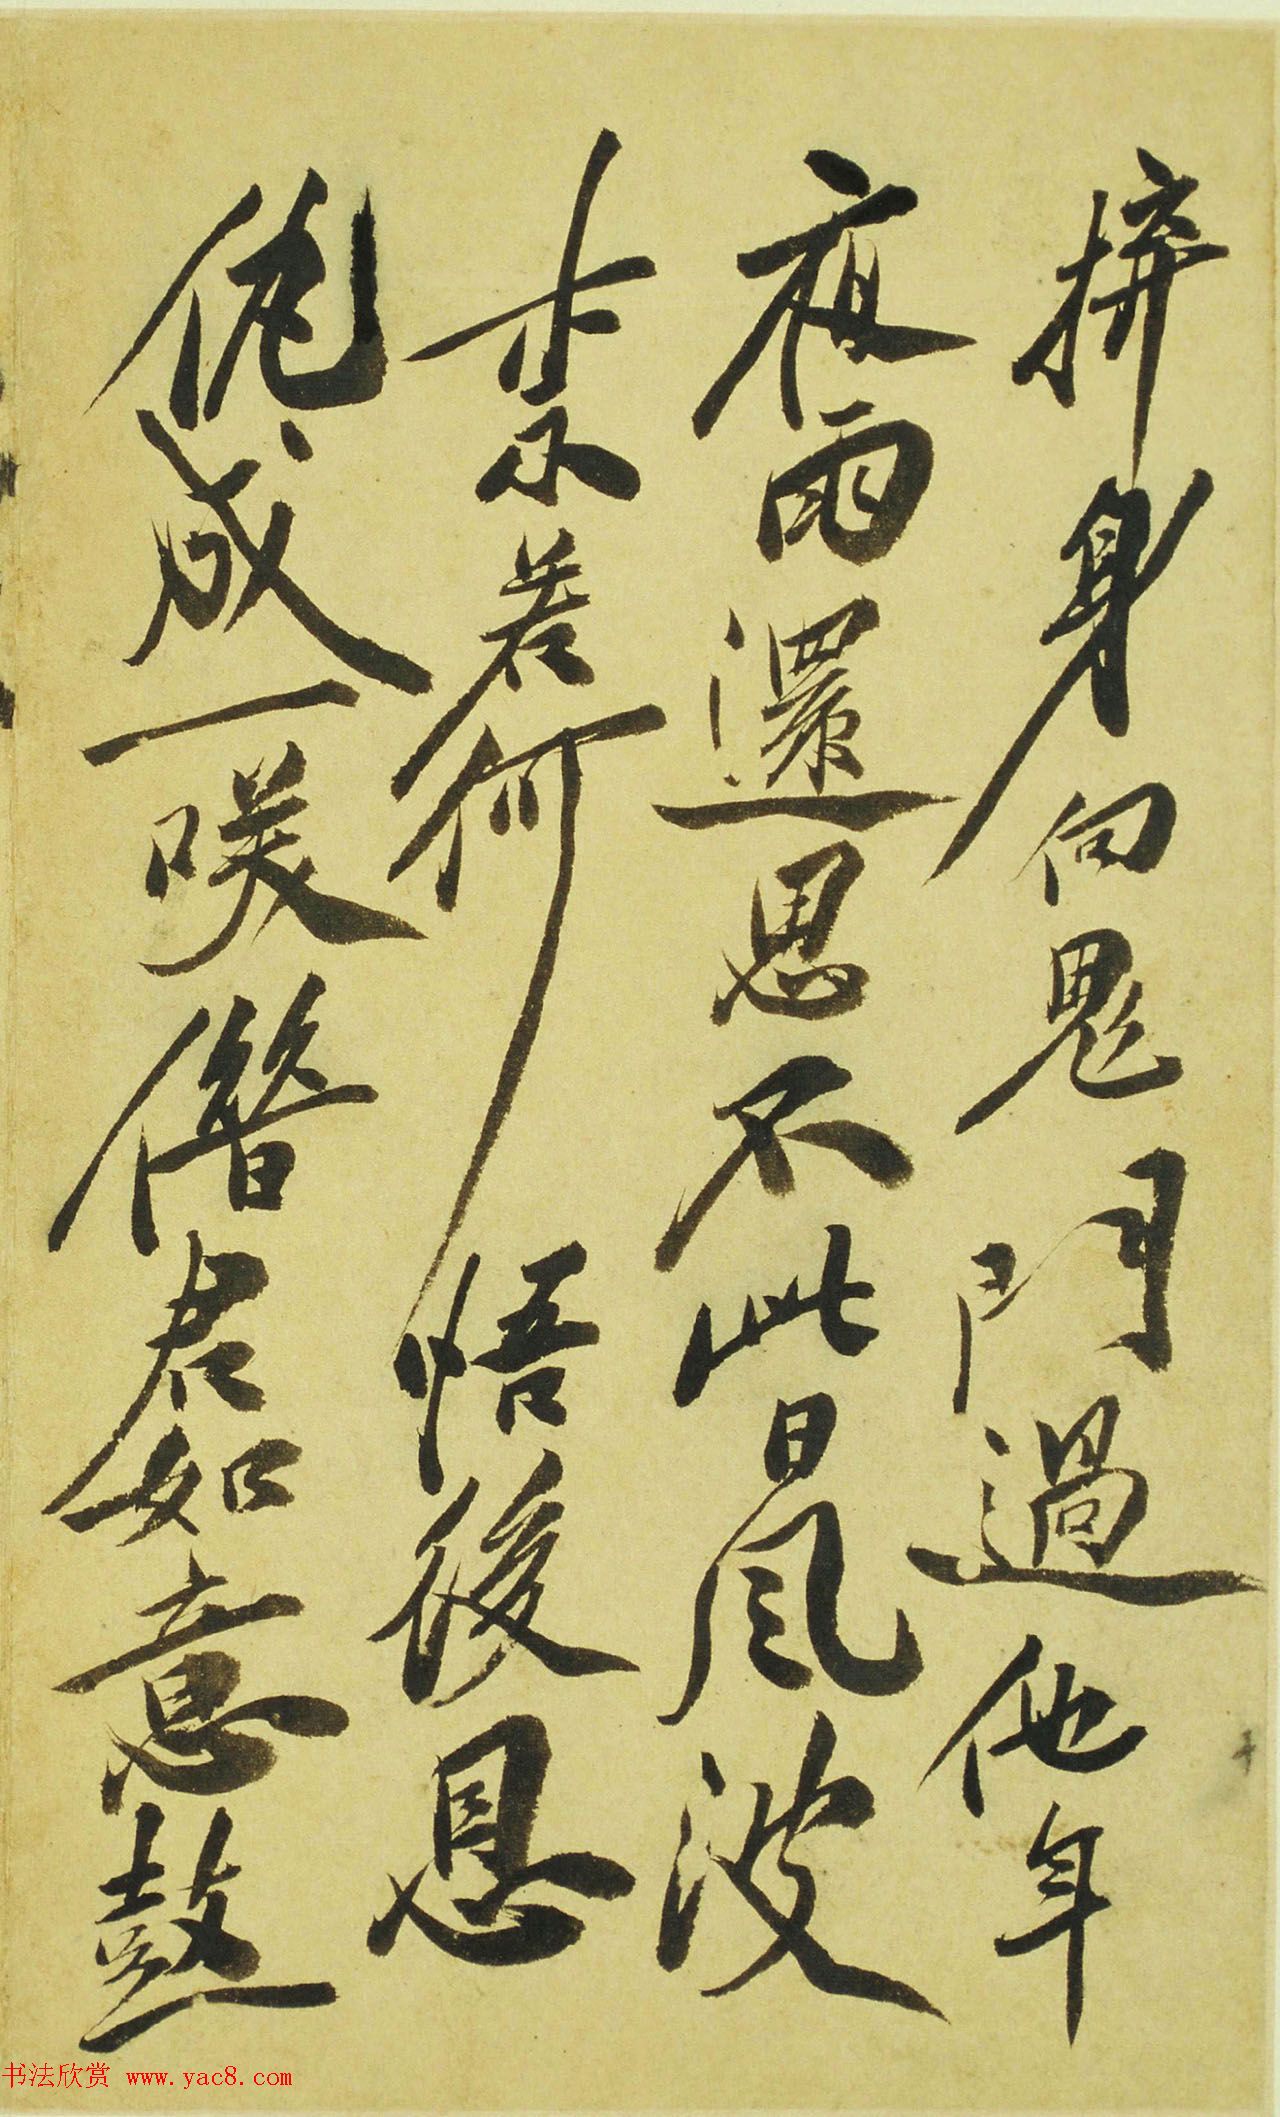 拼身向鬼門過他年
夜雨還思不此日風波
柰若何悟後恩
仇成一咲僭君如意鼓
书法欣赏 www.yac8.com